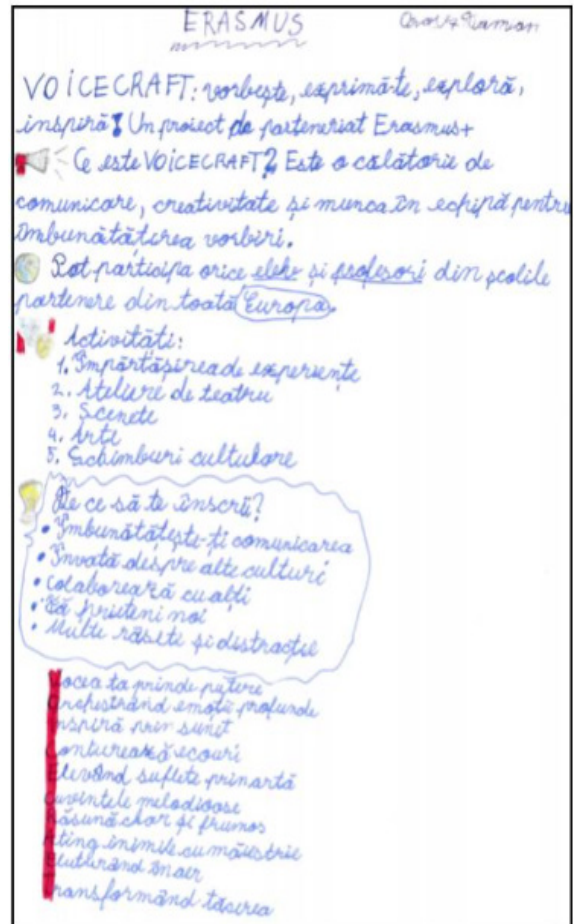 ERASMUS
VOICECRAFT: vorbește, exprimă-te, exploră,
inspiră! Un proiect de parteneriat Erasmus+
Ce este VOICECRAFT? Este o călătorie de
comunicare, creativitate și munca în echipă pentru
îmbunătățirea vorbiri.
Pot participa orice elev și profesori din școlile
partenere din toată Europa.
Activități:
1. Împărtășirea de experiențe
2. Ateliere de teatru
3. Scenete
4. Arte
5. Schimburi culturare
De ce să te înscrii?
• Îmbunătățește-ți comunicarea
• Învată despre alte culturi
• Colaborează cu alți
• Fă prieteni noi
• Multe râsete și distracție
Vocea ta prinde putere
Orchestrând emoții profunde
Inspiră prin sunet
Conturează ecouri
Elevând suflete prin artă
Cuvintele melodioase
Răsună clar și frumos
Ating inimile cu măiestrie
Fluturând în aer
Transformând tăcerea